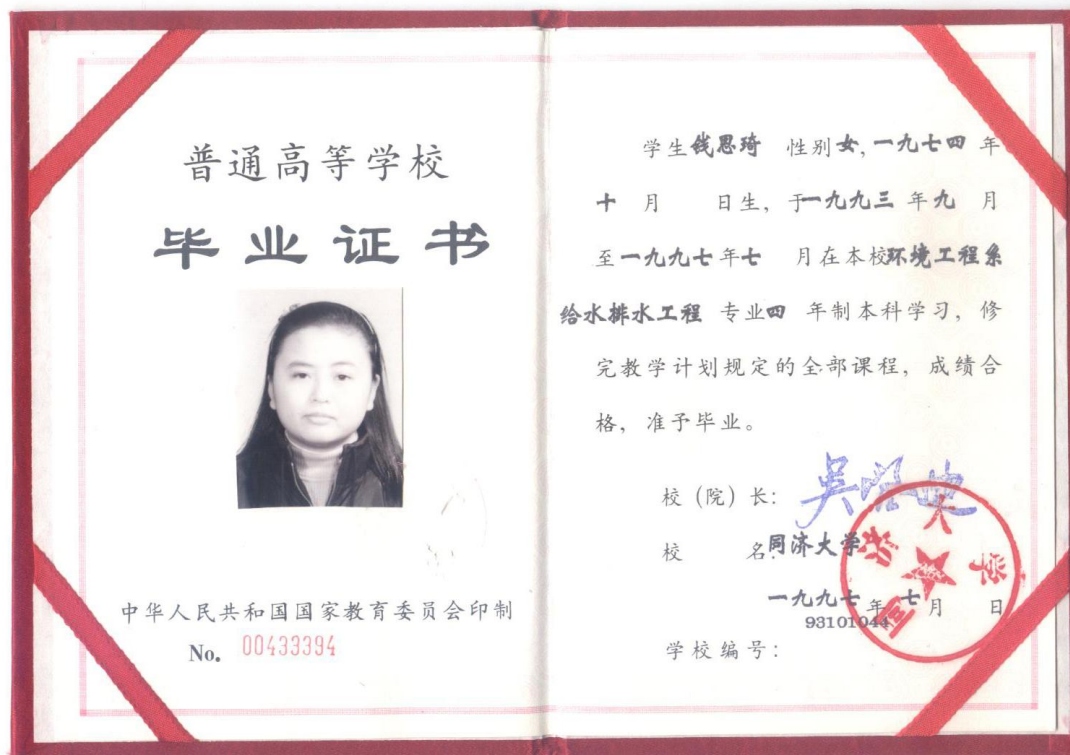 普通高等学校
毕业证书
中华人民共和国国家教育委员会印制
No. 00433394
学生钱思琦 性别女,一九七四年
十月 日生,于一九九三年九月
至一九九七年七月在本校环境工程系
给水排水工程 专业四年制本科学习,修
完教学计划规定的全部课程,成绩合
格,准予毕业。
校(院)长:吴启迪
校 名:同济大学
同济大学
一九九七年七月 日
93101044
学校编号: